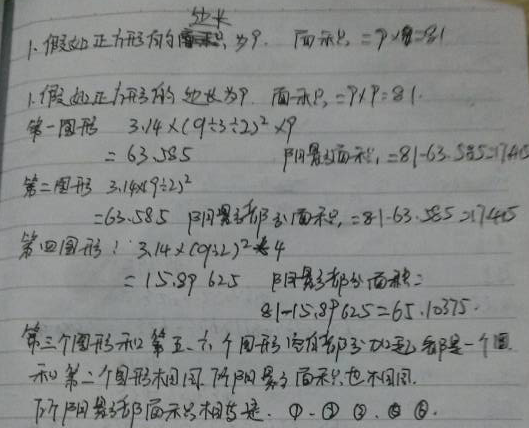 边长
1. 假如正方形的 为9. 面积 =9×9=81
1. 假如正方形的 边长为9 面积 =9×9=81.
第一图形 3.14×(9÷3÷2)²×9
=63.585 阴影面积 =81-63.585=17.415
第二图形 3.14×(9÷2)²
=63.585 阴影部分面积 =81-63.585=17.415
第四图形: 3.14×(9÷2)² 4
=15.89625 阴影部分面积=
81-15.89625=65.10375.
第三个图形和第五.六个图形 部分 起 都是一个圆.
和第二个图形相同 所阴影 面积也相同.
所 阴影部 面积相等是. ①. ② ③. ⑤ ⑥.